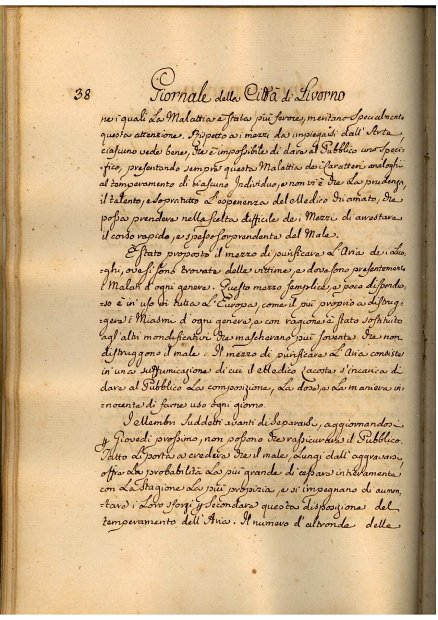 38 Giornale della Città di Livorno
ne i quali La Malattia è stata più feroce, meritano Specialmente
questa attenzione. Rispetto a i mezzi da impiegarsi dall'Arte
ciascuno vede bene, che è impossibile di dare al Pubblico uno speci-
fico, presentando sempre questa Malattia de i Caratteri analoghi
al temperamento di ciascuno Individuo, e non vi è che La prudenza,
il talento, e soprattutto L'esperienza del Medico chiamato, che
possa prendere nella scelta difficile de i Mezzi di arrestare
il corso rapido, e spesso sorprendente del Male.
È stato proposto il mezzo di purificare L'Aria de i Luo-
ghi, ove si sono trovate delle vittime, e dove sono presentemente
Malati d'ogni genere. Questo mezzo semplice, e poco dispendio-
so è in uso in tutta L'Europa, come il più proprio a distrug-
gere i Miasmi d'ogni genere, e con ragione è stato sostituito
agl'altri mondificativi che mascherano più sovente che non
distruggono il male. Il mezzo di purificare L'Aria consiste
in una suffumicazione di cui il Medico Lacoste s'incarica di
dare al Pubblico La composizione, La dose, e La maniera in-
nocente di farne uso ogni giorno.
I Membri Suddetti avanti di Separarsi, aggiornandosi
p Giovedì prossimo, non possono che rassicurare il Pubblico.
Tutto Li porta a credere che il male, Lungi dall'aggravarsi,
offra La probabilità La più grande di cessare interamente
con La Stagione La più propizia, e si impegnano di aumen-
tare i Loro sforzi p Secondare questa disposizione del
temperamento dell'Aria. Il numero d'altronde delle